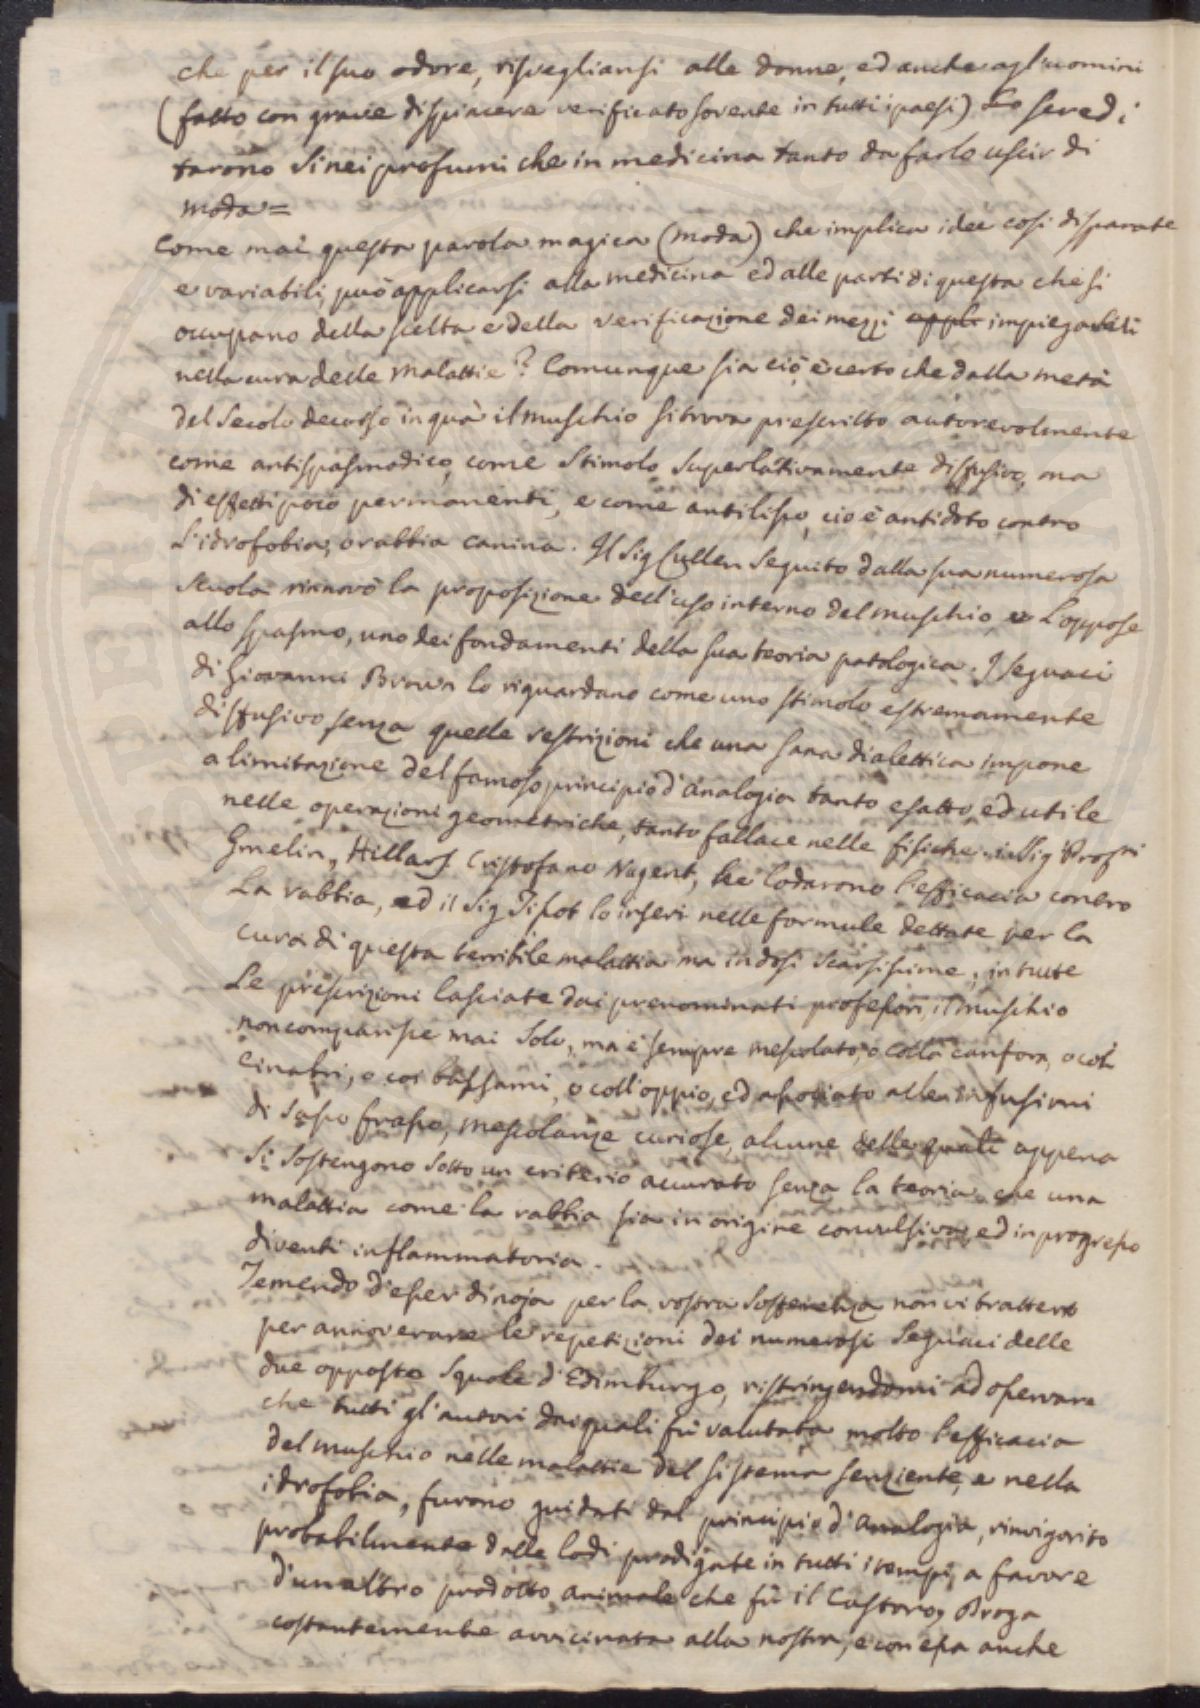 che per il suo odore, risvegliansi alle donne, ed anche agl'uomini
(fatto con grave dispiacere verificato sovente in tutti i paesi) Lo scredi
tarono sì nei profumi che in medicina tanto da farlo uscir di
moda =
Come mai questa parola magica (moda) che implica idee così disparate
e variabili, può applicarsi alla medicina ed alle parti di questa che si
occupano della scelta e della verificazione dei mezzi appl impiegabili
nella cura delle malattie? Comunque sia ciò, è certo che dalla metà
del Secolo decorso in quà il muschio si trova prescritto autorevolmente
come antispasmodico, come Stimolo superlativamente diffusivo, ma
di effetti poco permanenti, e come antilisso, cio è antidoto contro
L'idrofobia, o rabbia canina. Il Sig Cullen seguito dalla sua numerosa
scuola rinnovò la proposizione dell'uso interno del muschio e L'oppose
allo spasmo, uno dei fondamenti della sua teoria patologica. I seguaci
di Giovanni Brown lo riguardano come uno stimolo estremamente
diffusivo senza quelle restrizioni che una sana dialettica impone
a limitazione del famoso principio d'analogia tanto esatto, ed utile
nelle operazioni geometriche, tanto fallace nelle fisiche. i Sig Profri
Gmelin, Hillars Cristofano Nugent, ne lodarono l'efficacia contro
La rabbia, ed il Sig Tissot lo inserì nelle formule dettate per la
cura di questa terribile malattia ma in dosi scarsissime, in tutte
Le prescrizioni lasciate dai prenominati professori, il muschio
non comparisce mai solo, ma è sempre mescolato, o colla canfora, o col
cinabri, o coi balsami, o coll'oppio, ed associato alle infusioni
di Sassofrasso, mescolanze curiose, alcune delle quali appena
Si sostengono sotto un criterio accurato senza la teoria che una
malattia come la rabbia sia in origine convulsiva, ed in progresso
diventi inflammatoria.
Temendo d'esser di noja per la vostra sofferenza non vi tratterò
per annoverare le repetizioni dei numerosi seguaci delle
due opposte Squole d'Edimburgo, ristringendomi ad osservare
che tutti gl'autori dai quali fù valutata molto l'efficacia
del muschio nelle malattie del sistema senziente, e nella
idrofobia, furono guidati dal principio d'analogia, rinvigorito
probabilmente dalle lodi prodigate in tutti i tempi, a favore
d'un altro prodotto animale che fù il Castoro, Droga
costantemente avvicinata alla nostra, e con essa anche